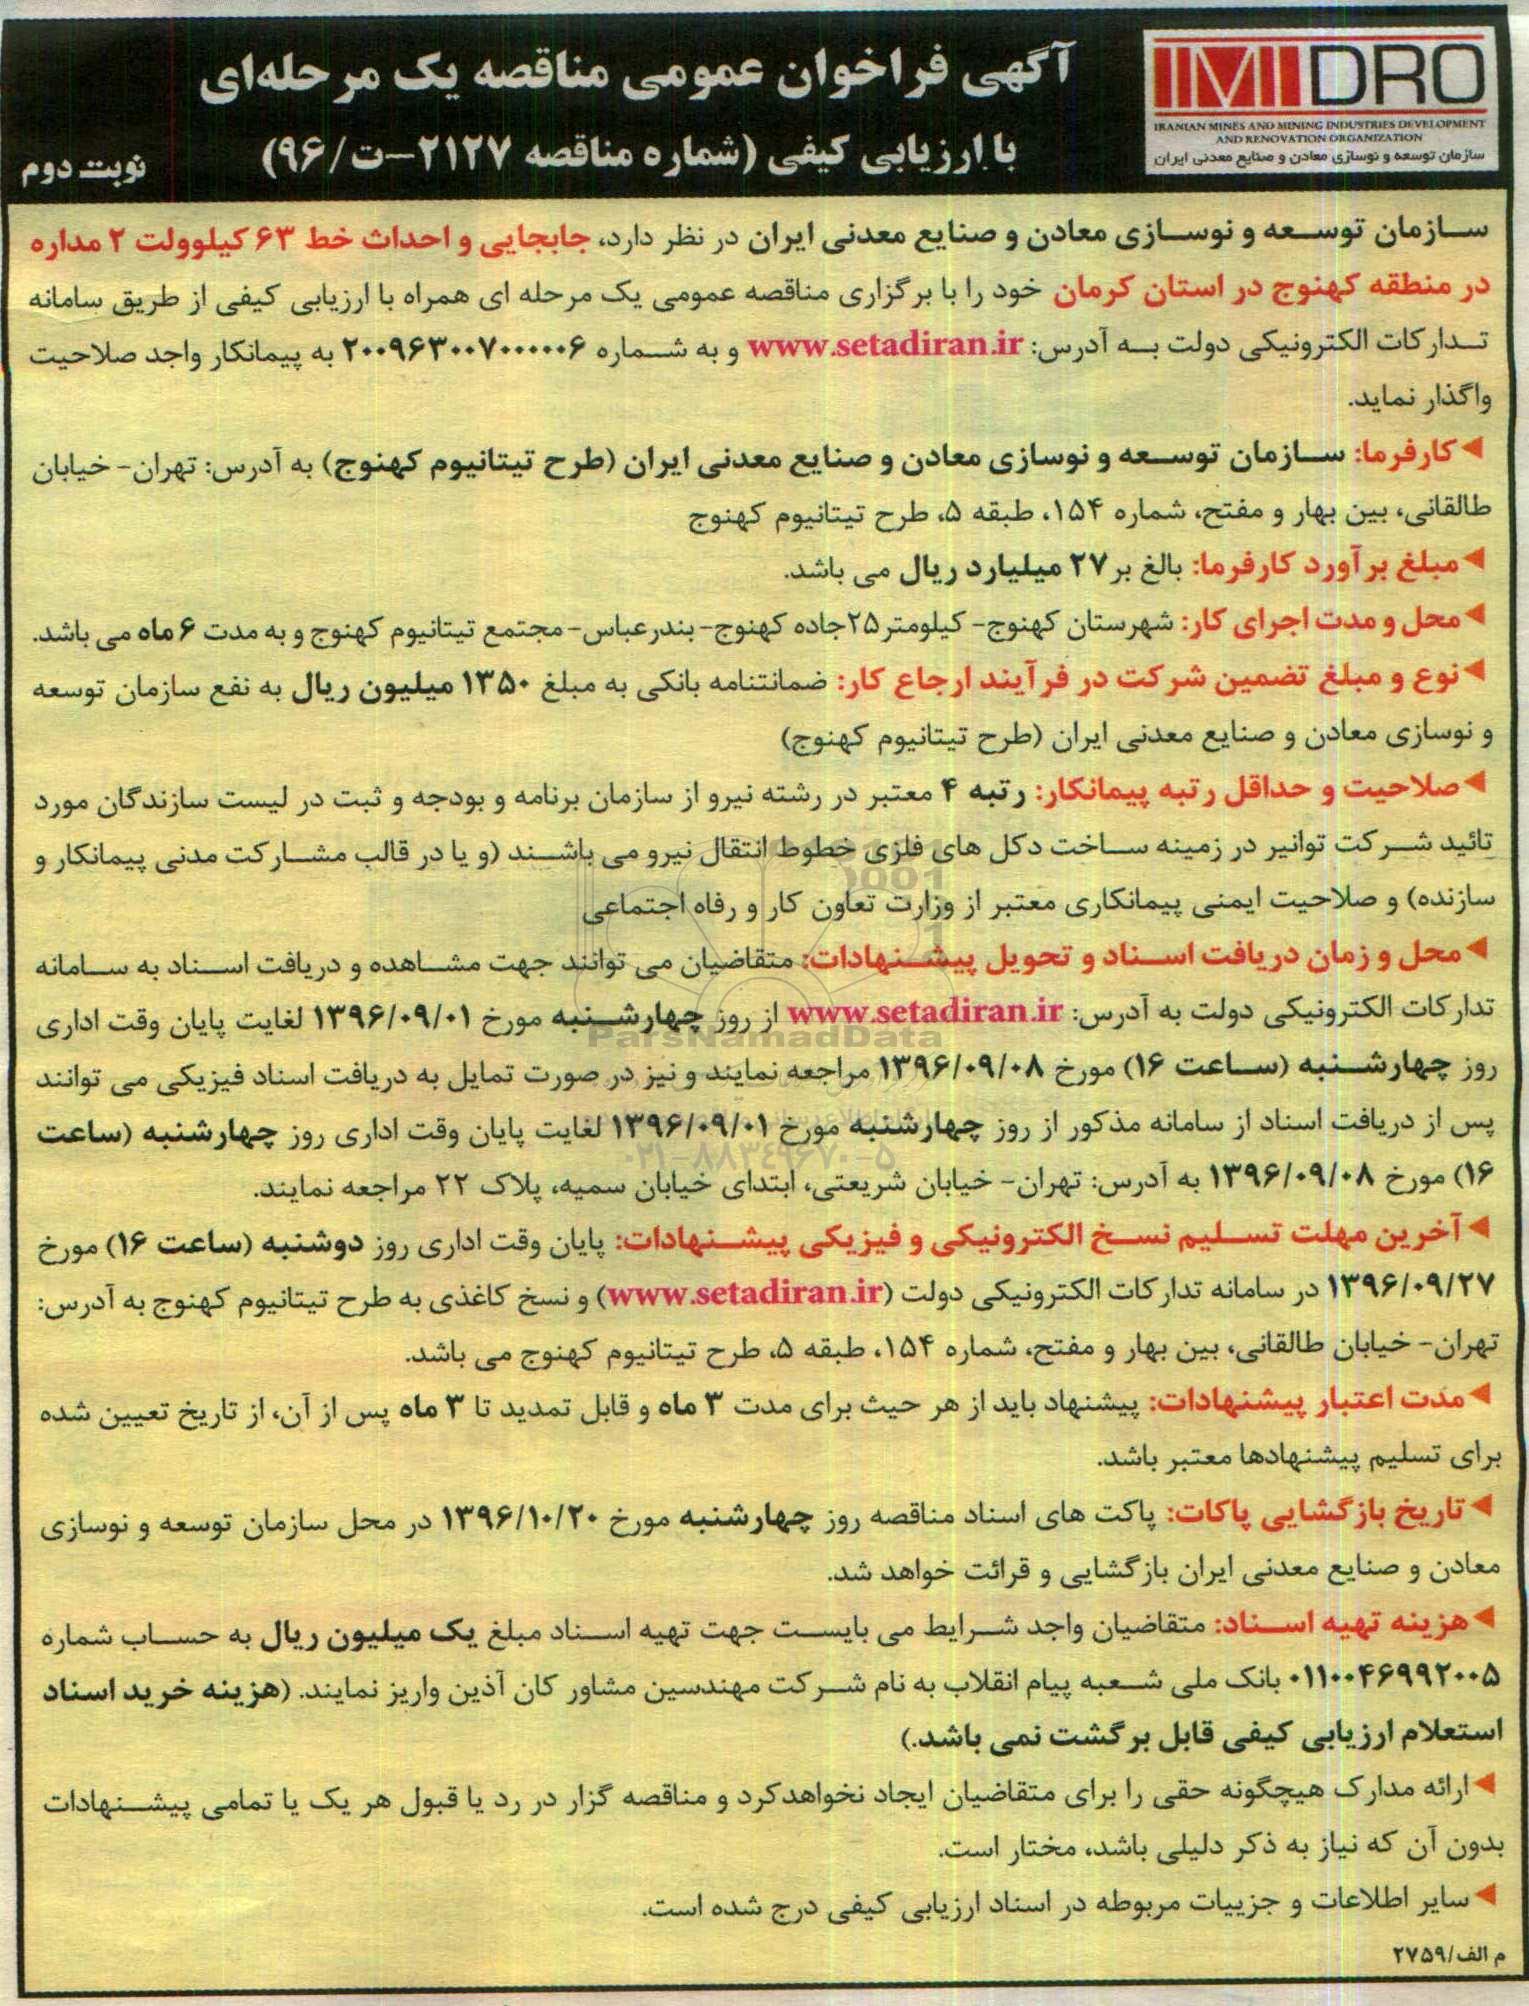 آگهی فراخوان عمومی مناقصه یک مرحله‌ای
با ارزیابی کیفی (شماره مناقصه ۲۱۲۷-ت/۹۶)
نوبت دوم
IMIDRO
IRANIAN MINES AND MINING INDUSTRIES DEVELOPMENT
AND RENOVATION ORGANIZATION
سازمان توسعه و نوسازی معادن و صنایع معدنی ایران
سازمان توسعه و نوسازی معادن و صنایع معدنی ایران در نظر دارد، جابجایی و احداث خط ۶۳ کیلوولت ۲ مداره
در منطقه کهنوج در استان کرمان خود را با برگزاری مناقصه عمومی یک مرحله ای همراه با ارزیابی کیفی از طریق سامانه
تدارکات الکترونیکی دولت به آدرس: www.setadiran.ir و به شماره ۲۰۰۹۶۳۰۰۷۰۰۰۰۰۶ به پیمانکار واجد صلاحیت
واگذار نماید.
◄کارفرما: سازمان توسعه و نوسازی معادن و صنایع معدنی ایران (طرح تیتانیوم کهنوج) به آدرس: تهران- خیابان
طالقانی، بین بهار و مفتح، شماره ۱۵۴، طبقه ۵، طرح تیتانیوم کهنوج
◄مبلغ برآورد کارفرما: بالغ بر۲۷ میلیارد ریال می باشد.
◄محل و مدت اجرای کار: شهرستان کهنوج- کیلومتر۲۵جاده کهنوج- بندرعباس-مجتمع تیتانیوم کهنوج و به مدت ۶ ماه می باشد.
◄نوع و مبلغ تضمین شرکت در فرآیند ارجاع کار: ضمانتنامه بانکی به مبلغ ۱۳۵۰ میلیون ریال به نفع سازمان توسعه
و نوسازی معادن و صنایع معدنی ایران (طرح تیتانیوم کهنوج)
◄صلاحیت و حداقل رتبه پیمانکار: رتبه ۴ معتبر در رشته نیرو از سازمان برنامه و بودجه و ثبت در لیست سازندگان مورد
تائید شرکت توانیر در زمینه ساخت دکل های فلزی خطوط انتقال نیرو می باشند (و یا در قالب مشارکت مدنی پیمانکار و
سازنده) و صلاحیت ایمنی پیمانکاری معتبر از وزارت تعاون کار و رفاه اجتماعی
◄محل و زمان دریافت اسناد و تحویل پیشنهادات: متقاضیان می توانند جهت مشاهده و دریافت اسناد به سامانه
تدارکات الکترونیکی دولت به آدرس: www.setadiran.ir از روز چهارشنبه مورخ ۱۳۹۶/۰۹/۰۱ لغایت پایان وقت اداری
ParsNamadData
روز چهارشنبه (ساعت ۱۶) مورخ ۱۳۹۶/۰۹/۰۸ مراجعه نمایند و نیز در صورت تمایل به دریافت اسناد فیزیکی می توانند
پس از دریافت اسناد از سامانه مذکور از روز چهارشنبه مورخ ۱۳۹۶/۰۹/۰۱ لغایت پایان وقت اداری روز چهارشنبه (ساعت
۰۲۱-۸۸۳۴۹۶۷۰-۵
۱۶) مورخ ۱۳۹۶/۰۹/۰۸ به آدرس: تهران- خیابان شریعتی، ابتدای خیابان سمیه، پلاک ۲۲ مراجعه نمایند.
◄آخرین مهلت تسلیم نسخ الکترونیکی و فیزیکی پیشنهادات: پایان وقت اداری روز دوشنبه (ساعت ۱۶) مورخ
۱۳۹۶/۰۹/۲۷ در سامانه تدارکات الکترونیکی دولت (www.setadiran.ir) و نسخ کاغذی به طرح تیتانیوم کهنوج به آدرس:
تهران- خیابان طالقانی، بین بهار و مفتح، شماره ۱۵۴، طبقه ۵، طرح تیتانیوم کهنوج می باشد.
◄مدت اعتبار پیشنهادات: پیشنهاد باید از هر حیث برای مدت ۳ ماه و قابل تمدید تا ۳ ماه پس از آن، از تاریخ تعیین شده
برای تسلیم پیشنهادها معتبر باشد.
◄تاریخ بازگشایی پاکات: پاکت های اسناد مناقصه روز چهارشنبه مورخ ۱۳۹۶/۱۰/۲۰ در محل سازمان توسعه و نوسازی
معادن و صنایع معدنی ایران بازگشایی و قرائت خواهد شد.
◄هزینه تهیه اسناد: متقاضیان واجد شرایط می بایست جهت تهیه اسناد مبلغ یک میلیون ریال به حساب شماره
۰۱۱۰۰۴۶۹۹۲۰۰۵ بانک ملی شعبه پیام انقلاب به نام شرکت مهندسین مشاور کان آذین واریز نمایند. (هزینه خرید اسناد
استعلام ارزیابی کیفی قابل برگشت نمی باشد.)
◄ارائه مدارک هیچگونه حقی را برای متقاضیان ایجاد نخواهدکرد و مناقصه گزار در رد یا قبول هر یک یا تمامی پیشنهادات
بدون آن که نیاز به ذکر دلیلی باشد، مختار است.
◄سایر اطلاعات و جزییات مربوطه در اسناد ارزیابی کیفی درج شده است.
م الف/۲۷۵۹